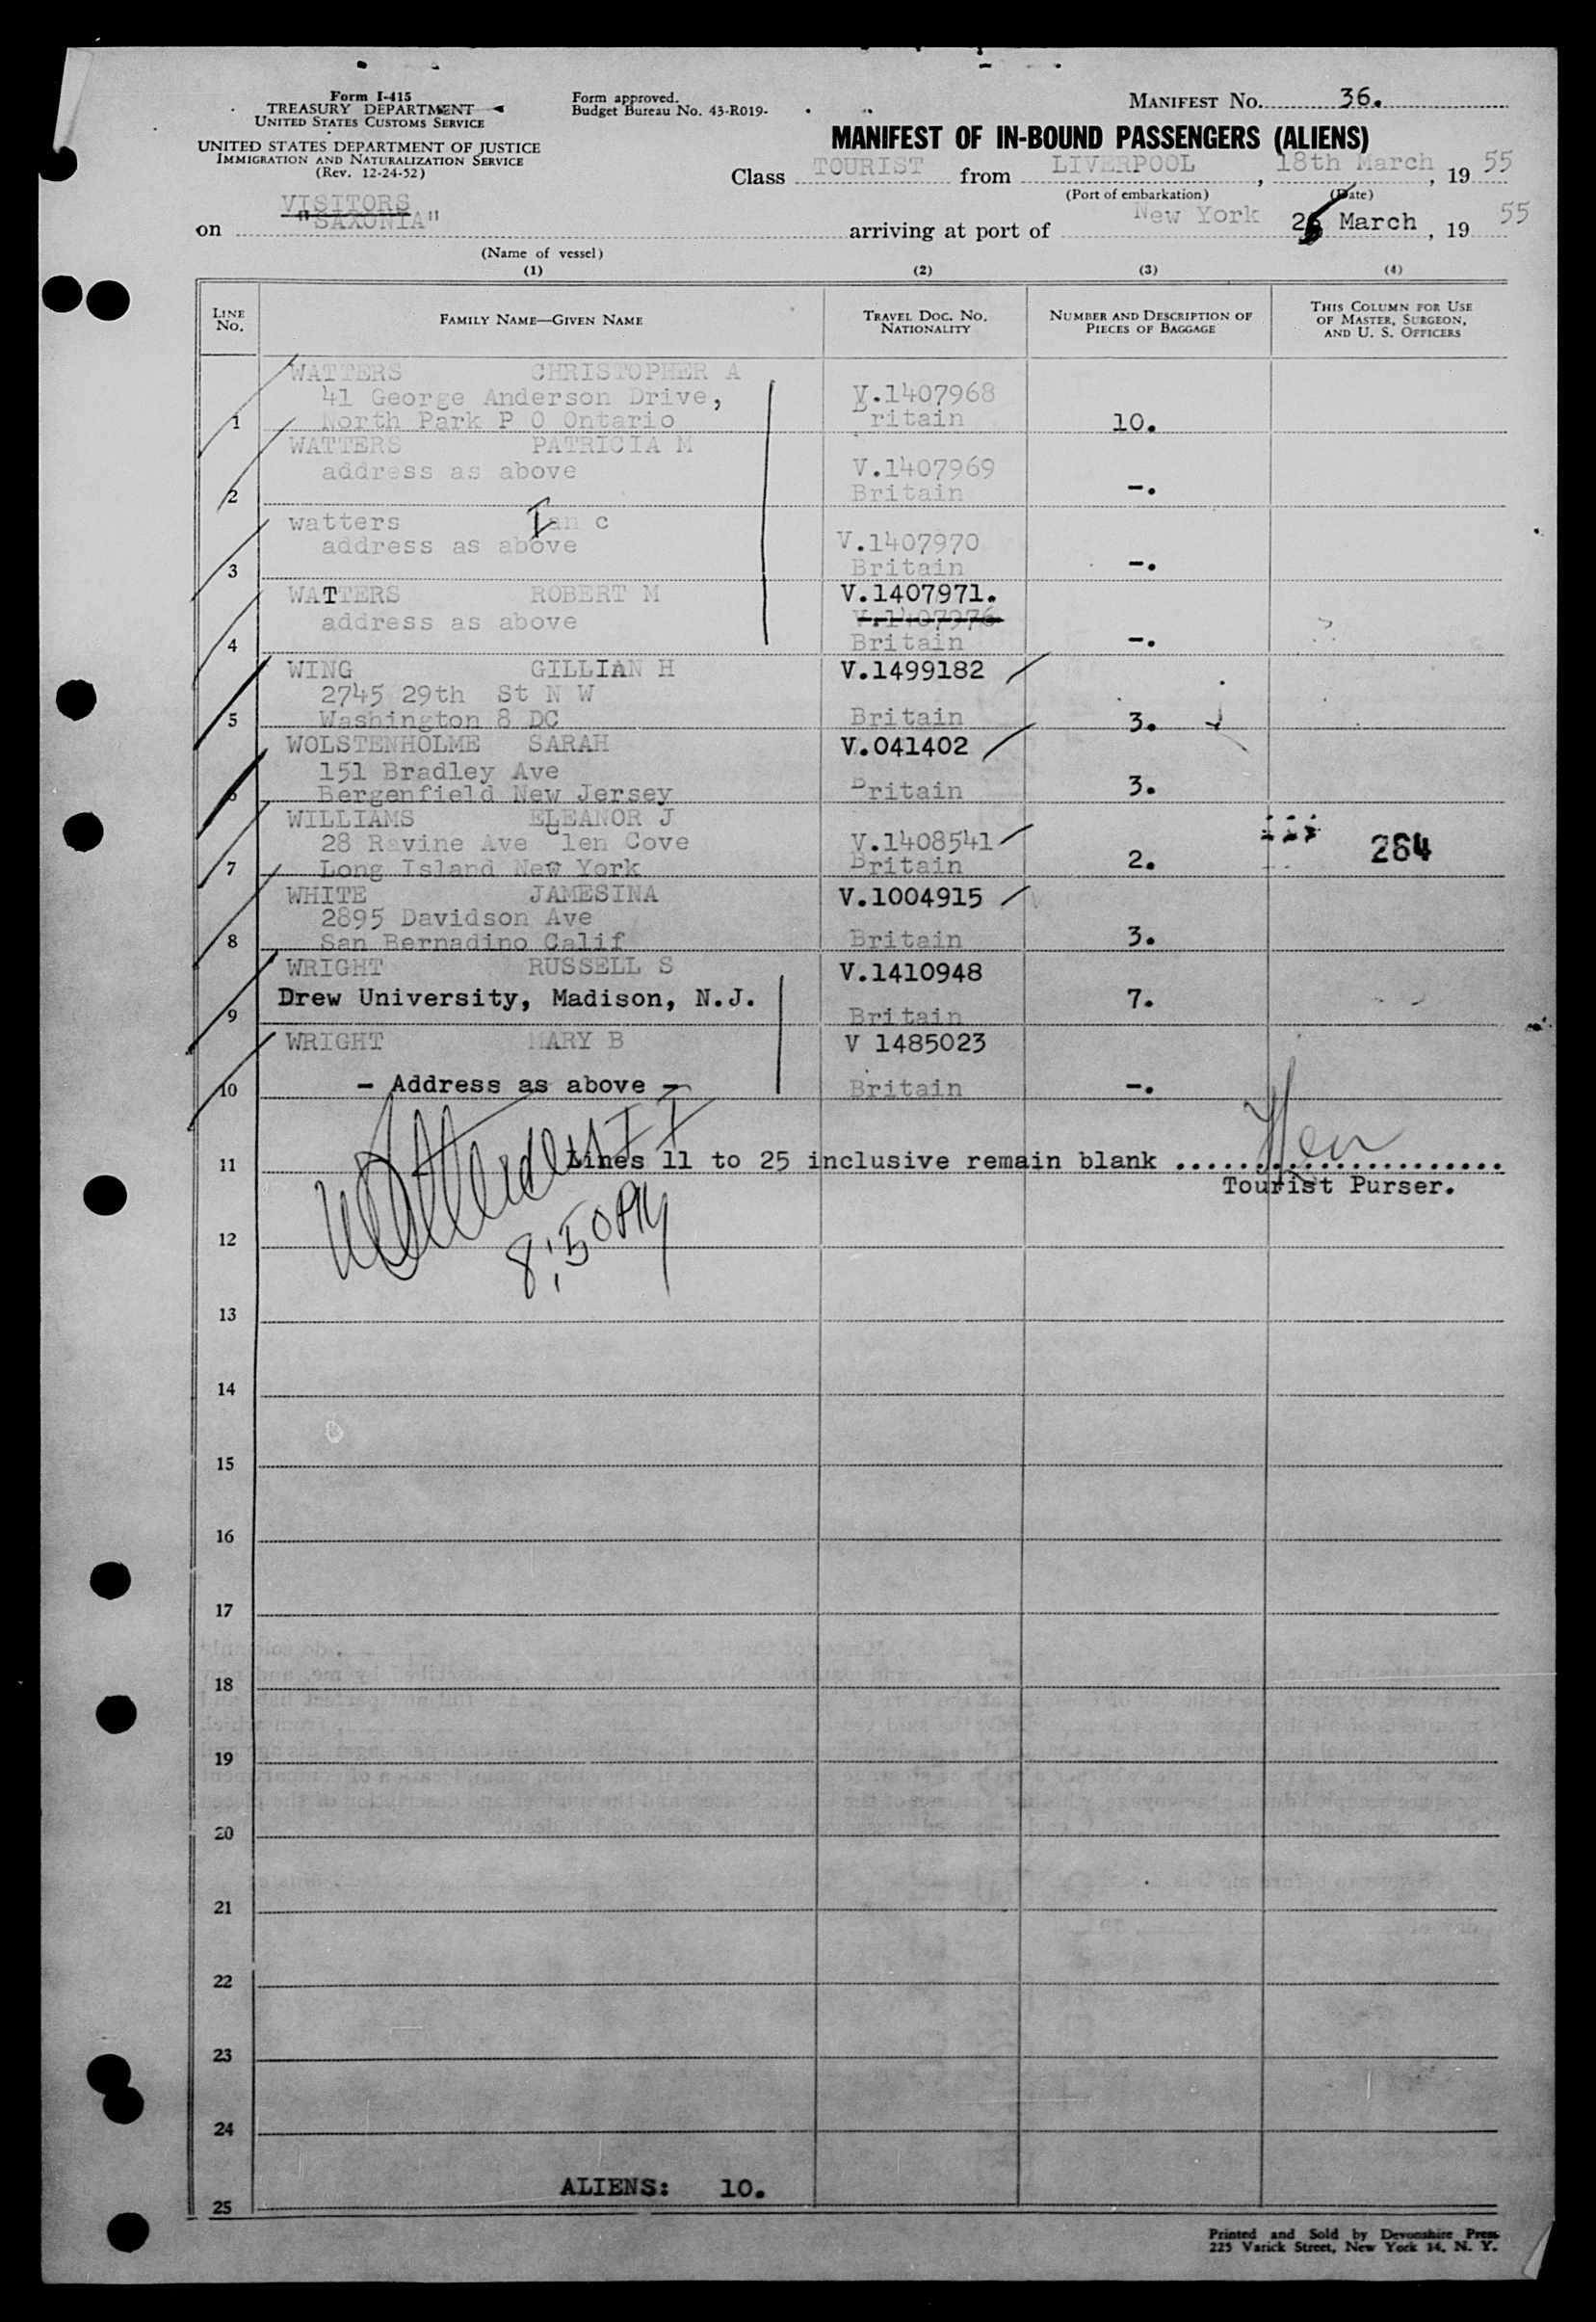 Form I-415
TREASURY DEPARTMENT
UNITED STATES CUSTOMS SERVICE
UNITED STATES DEPARTMENT OF JUSTICE
IMMIGRATION AND NATURALIZATION SERVICE
(Rev. 12-24-52)
Form approved.
Budget Bureau No. 43-R019-
MANIFEST NO. 36.
MANIFEST OF IN-BOUND PASSENGERS (ALIENS)
Class TOURIST from LIVERPOOL, 18th March, 19 55
(Port of embarkation) (Date)
VISITORS
on "SAXONIA" arriving at port of New York 2 March, 19 55
(Name of vessel)
(1) (2) (3) (4)
LINE NO. FAMILY NAME—GIVEN NAME TRAVEL DOC. NO. NATIONALITY NUMBER AND DESCRIPTION OF PIECES OF BAGGAGE THIS COLUMN FOR USE OF MASTER, SURGEON, AND U. S. OFFICERS
WATTERS CHRISTOPHER A
41 George Anderson Drive, V.1407968
1 North Park P O Ontario ritain 10.
WATTERS PATRICIA M
address as above V.1407969
2 Britain -.
watters Ian c
address as above V.1407970
3 Britain -.
WATTERS ROBERT M V.1407971.
address as above V.1407976
4 Britain -.
WING GILLIAN H V.1499182
2745 29th St N W
5 Washington 8 DC Britain 3.
WOLSTENHOLME SARAH V.041402
151 Bradley Ave
6 Bergenfield New Jersey Britain 3.
WILLIAMS ELEANOR J
28 Ravine Ave Glen Cove V.1408541 264
7 Long Island New York Britain 2.
WHITE JAMESINA V.1004915
2895 Davidson Ave
8 San Bernadino Calif Britain 3.
WRIGHT RUSSELL S V.1410948
Drew University, Madison, N.J. 7.
9 Britain
WRIGHT MARY B V 1485023
10 - Address as above - Britain -.
11 Lines 11 to 25 inclusive remain blank ......................
Tourist Purser.
8:50 PM
12
13
14
15
16
17
18
19
20
21
22
23
24
ALIENS: 10.
25
Printed and Sold by Devonshire Press
225 Varick Street, New York 14, N. Y.